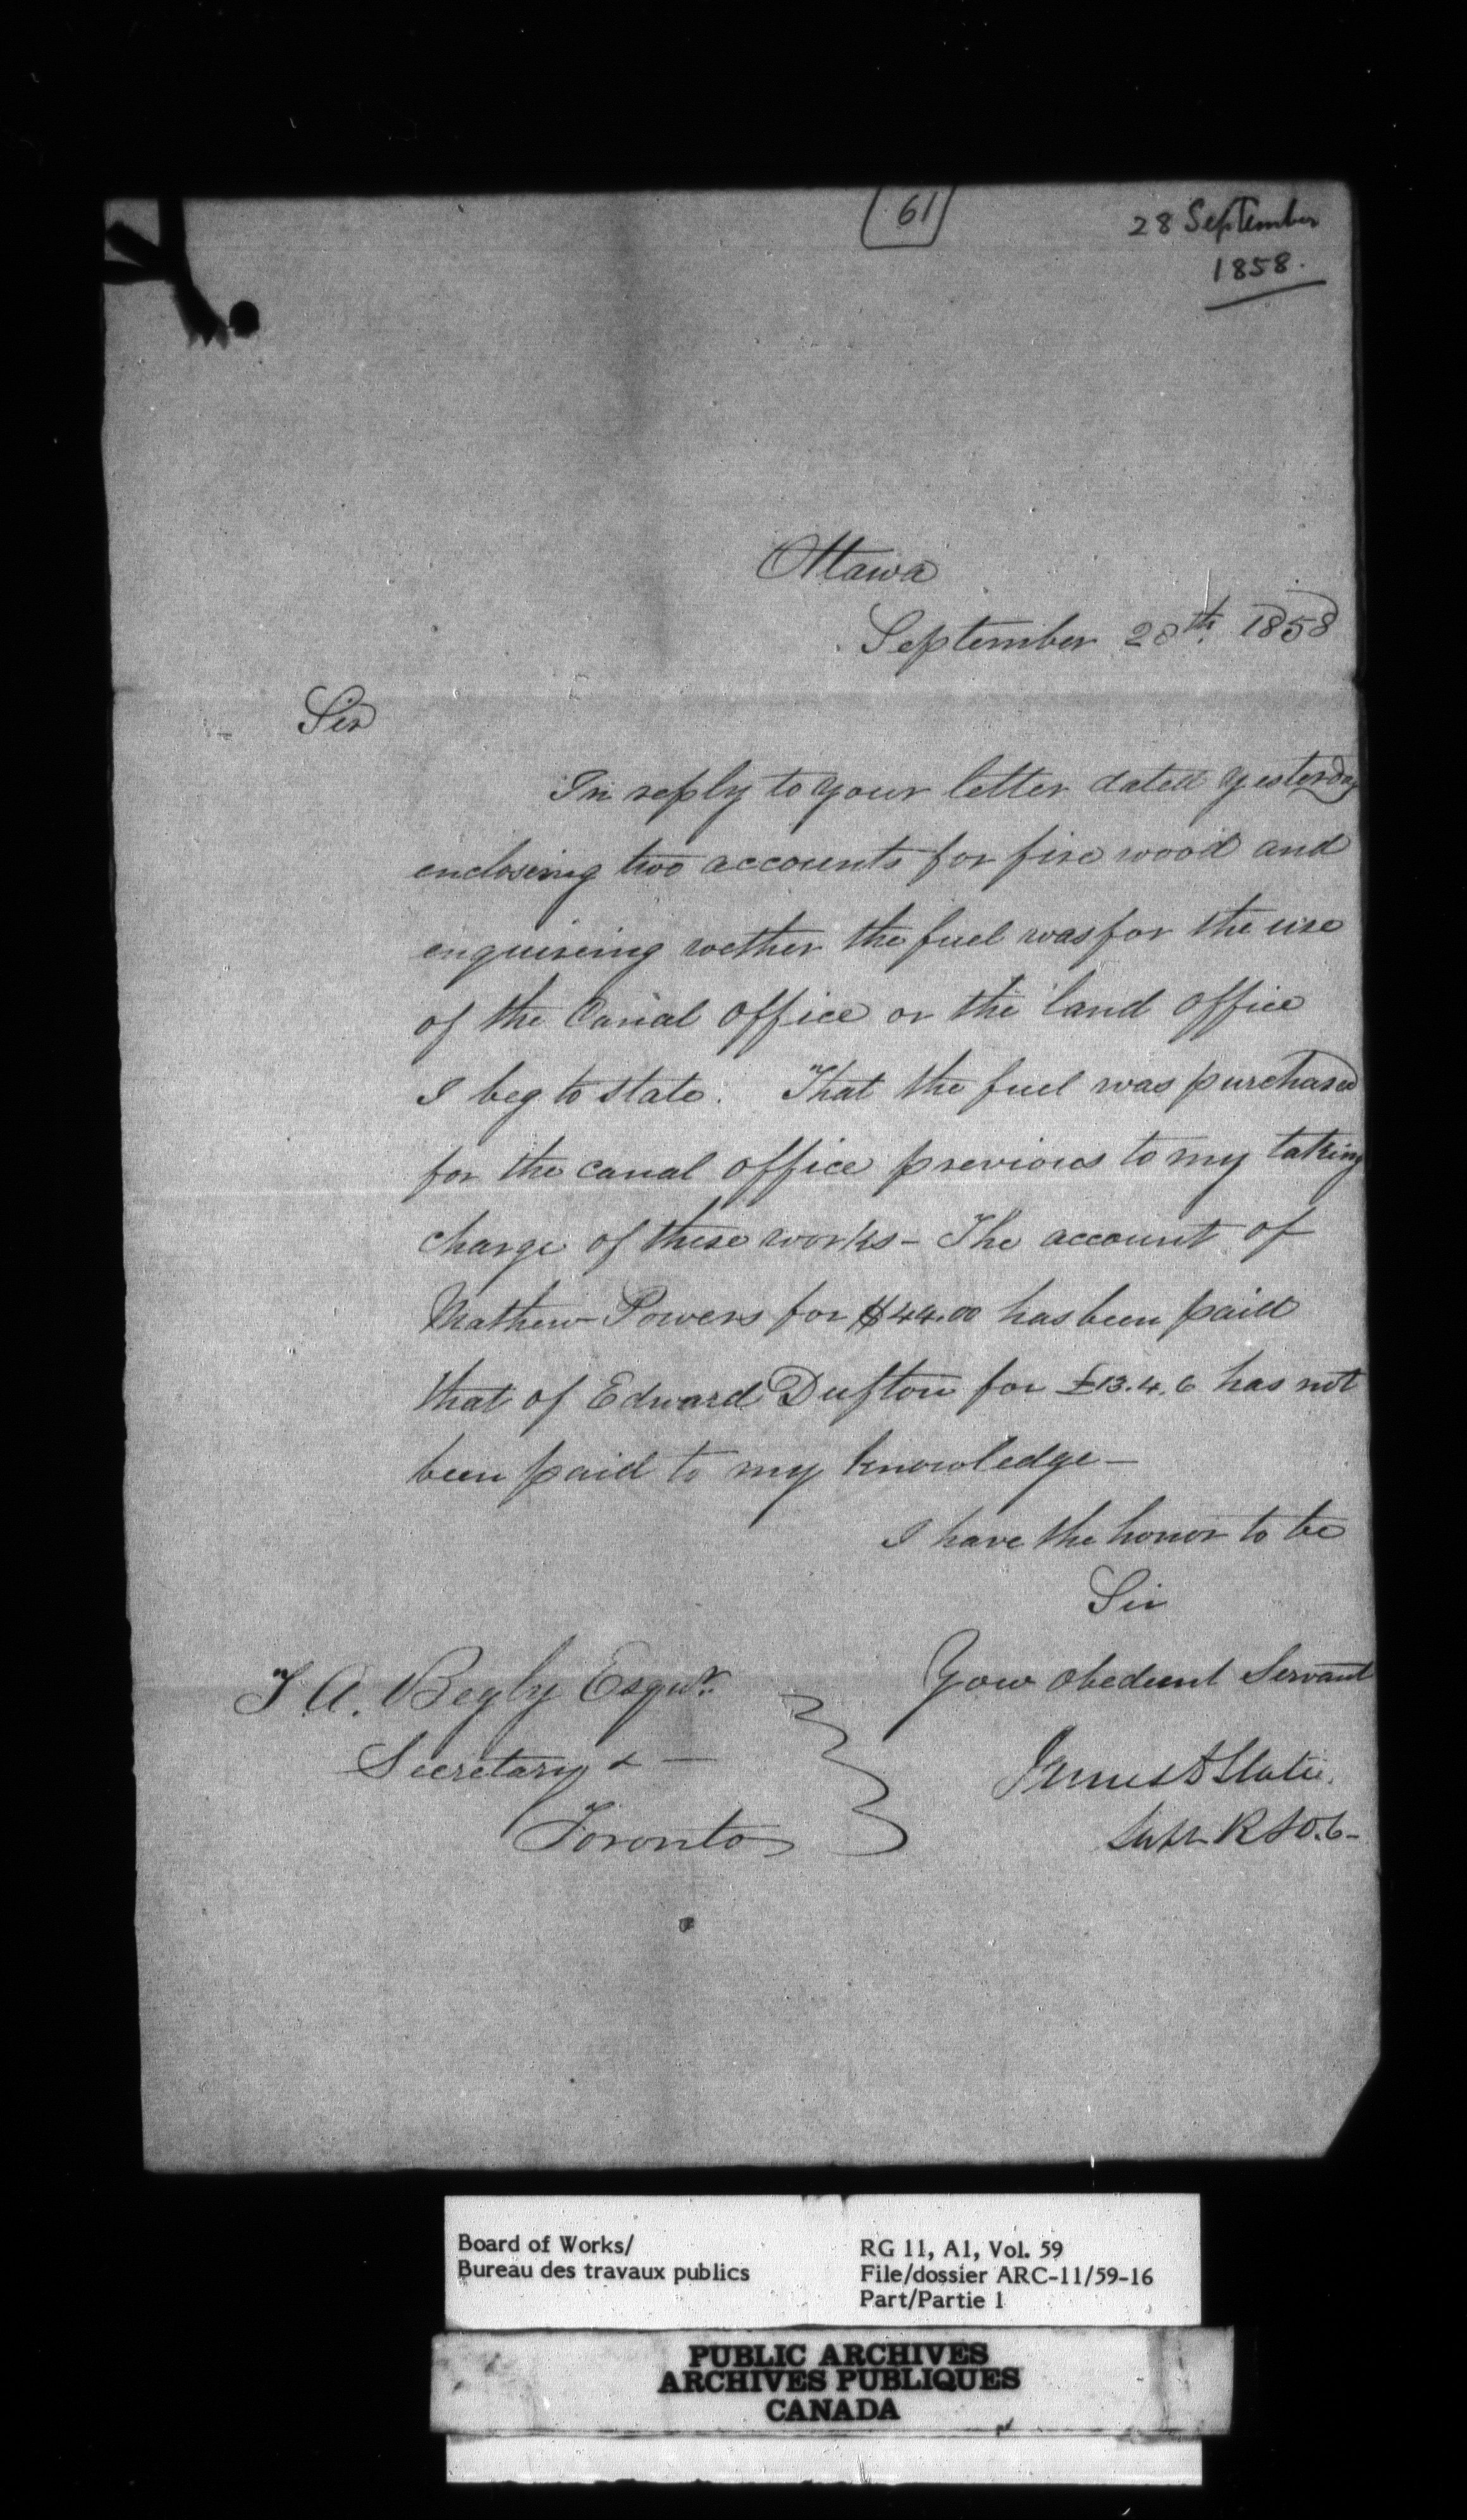 61
28 September
1858.
Ottawa
September 28th. 1858
Sir
In reply to your letter dated yesterday
enclosing two accounts for fire wood and
enquireing wether the fuel was for the use
of the Canal Office or the land Office
I beg to state. That the fuel was purchased
for the canal Office previous to my taking
charge of these works - The account of
Mathew Powers for $44.00 has been paid
that of Edward Dufton for £13.4.6 has not
been paid to my knowledge -
I have the honor to be
Sir
Your obedient Servant
T. A. Begly Esqur.
Secretary & -
Toronto
James D Slater
Supt R & O. C -
Board of Works/
Bureau des travaux publics
RG 11, A1, Vol. 59
File/dossier ARC-11/59-16
Part/Partie 1
PUBLIC ARCHIVES
ARCHIVES PUBLIQUES
CANADA